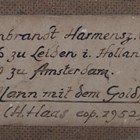 mbrandt Harmensz.
6 zu Leiden i. Hollan
9 zu Amsterdam.
Mann mit dem Gold
(H. Haas cop. 1952